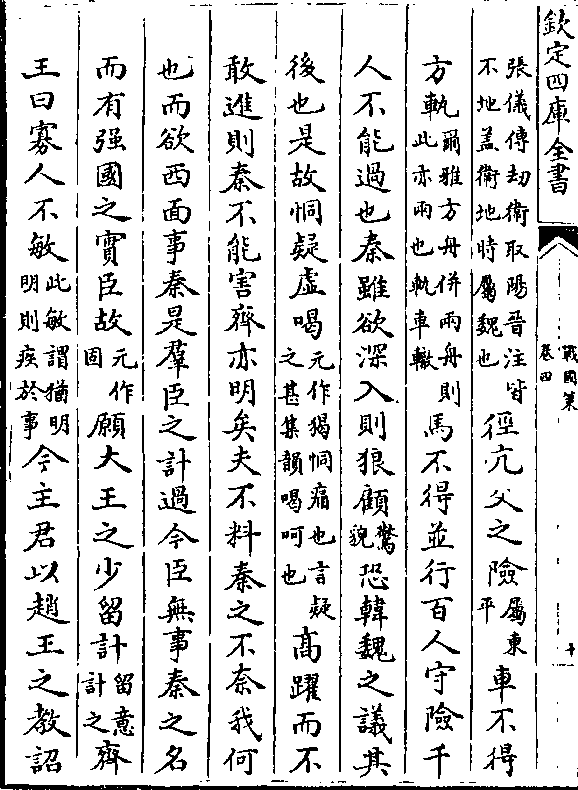 欽定四庫全書
戰國策
卷四
十
張儀傳劫衛取陽晉注皆不地蓋衛地時屬魏也徑亢父之險屬東平車不得
方軌爾雅方舟併兩舟此亦兩也軌車轍則馬不得並行百人守險千
人不能過也秦雖欲深入則狼顧驚貌恐韓魏之議其
後也是故恫疑虛喝元作猲恫痛也言疑之甚集韻喝呵也高躍而不
敢進則秦不能害齊亦明矣夫不料秦之不奈我何
也而欲西面事秦是羣臣之計過今臣無事秦之名
而有强國之實臣故元作固願大王之少留計留意計之齊
王曰寡人不敏此敏謂猶明明則疾於事今主君以趙王之教詔